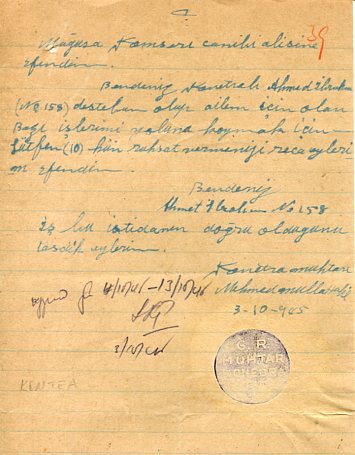 39
Mağusa Komseri canibi alisine
efendim.
Bendeniz Konetralı Ahmed Ibrahim
(No 158) desteban olup ailem için olan
Bazı işlerimi yoluna koymak için
Lütfen (10) gün ruhsat vermenizi reca eyleri
m efendim.
Bendeniz
Ahmet Ibrahim No 158
İş bu istidanın doğru oldugunu
tasdik eylerim.
Konetra muhtarı
Mehmed
3-10-945
4/10/45-13/10/45
3/10/45
G. R.
MUHTAR
KENTEA